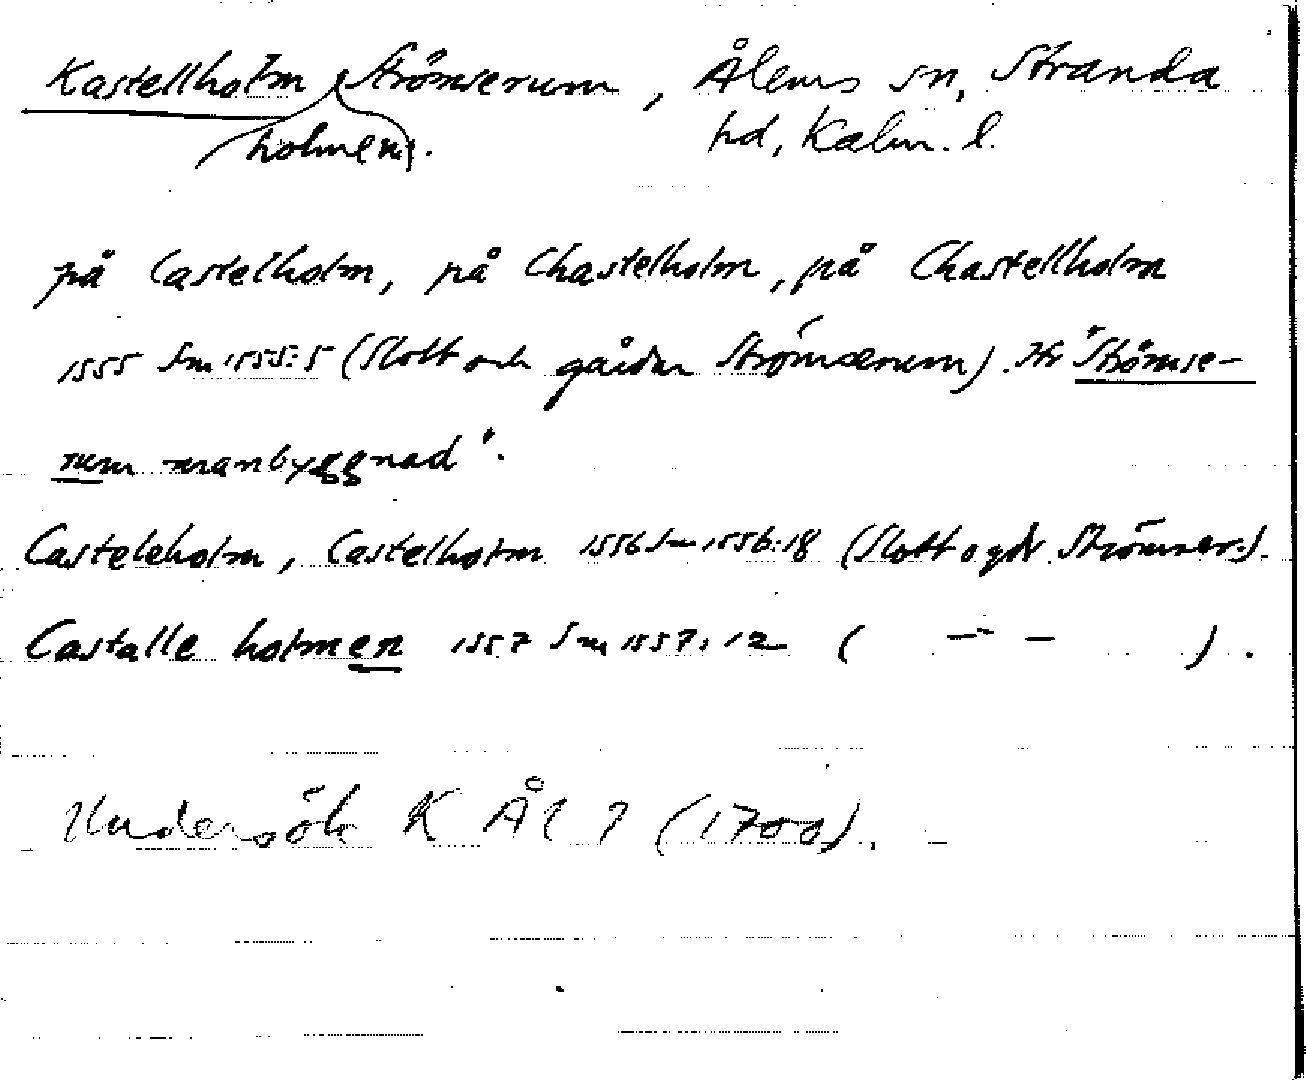 Kastellholm Strömserum, Ålems sn, Stranda
holmen. hd, Kalm. l.
på Castelholm, på Chastelholm, på Chastellholm
1555 Sm 1555:5 (Slott och gårdar Strömserum). "Strömse-
rum manbyggnad".
Casteleholm, Castelholm 1556 Sm 1556:18 (Slott o gdr Strömser.).
Castalle holmen 1557 Sm 1557:12 ( — " — ).
Undersök K Ål 7 (1700).